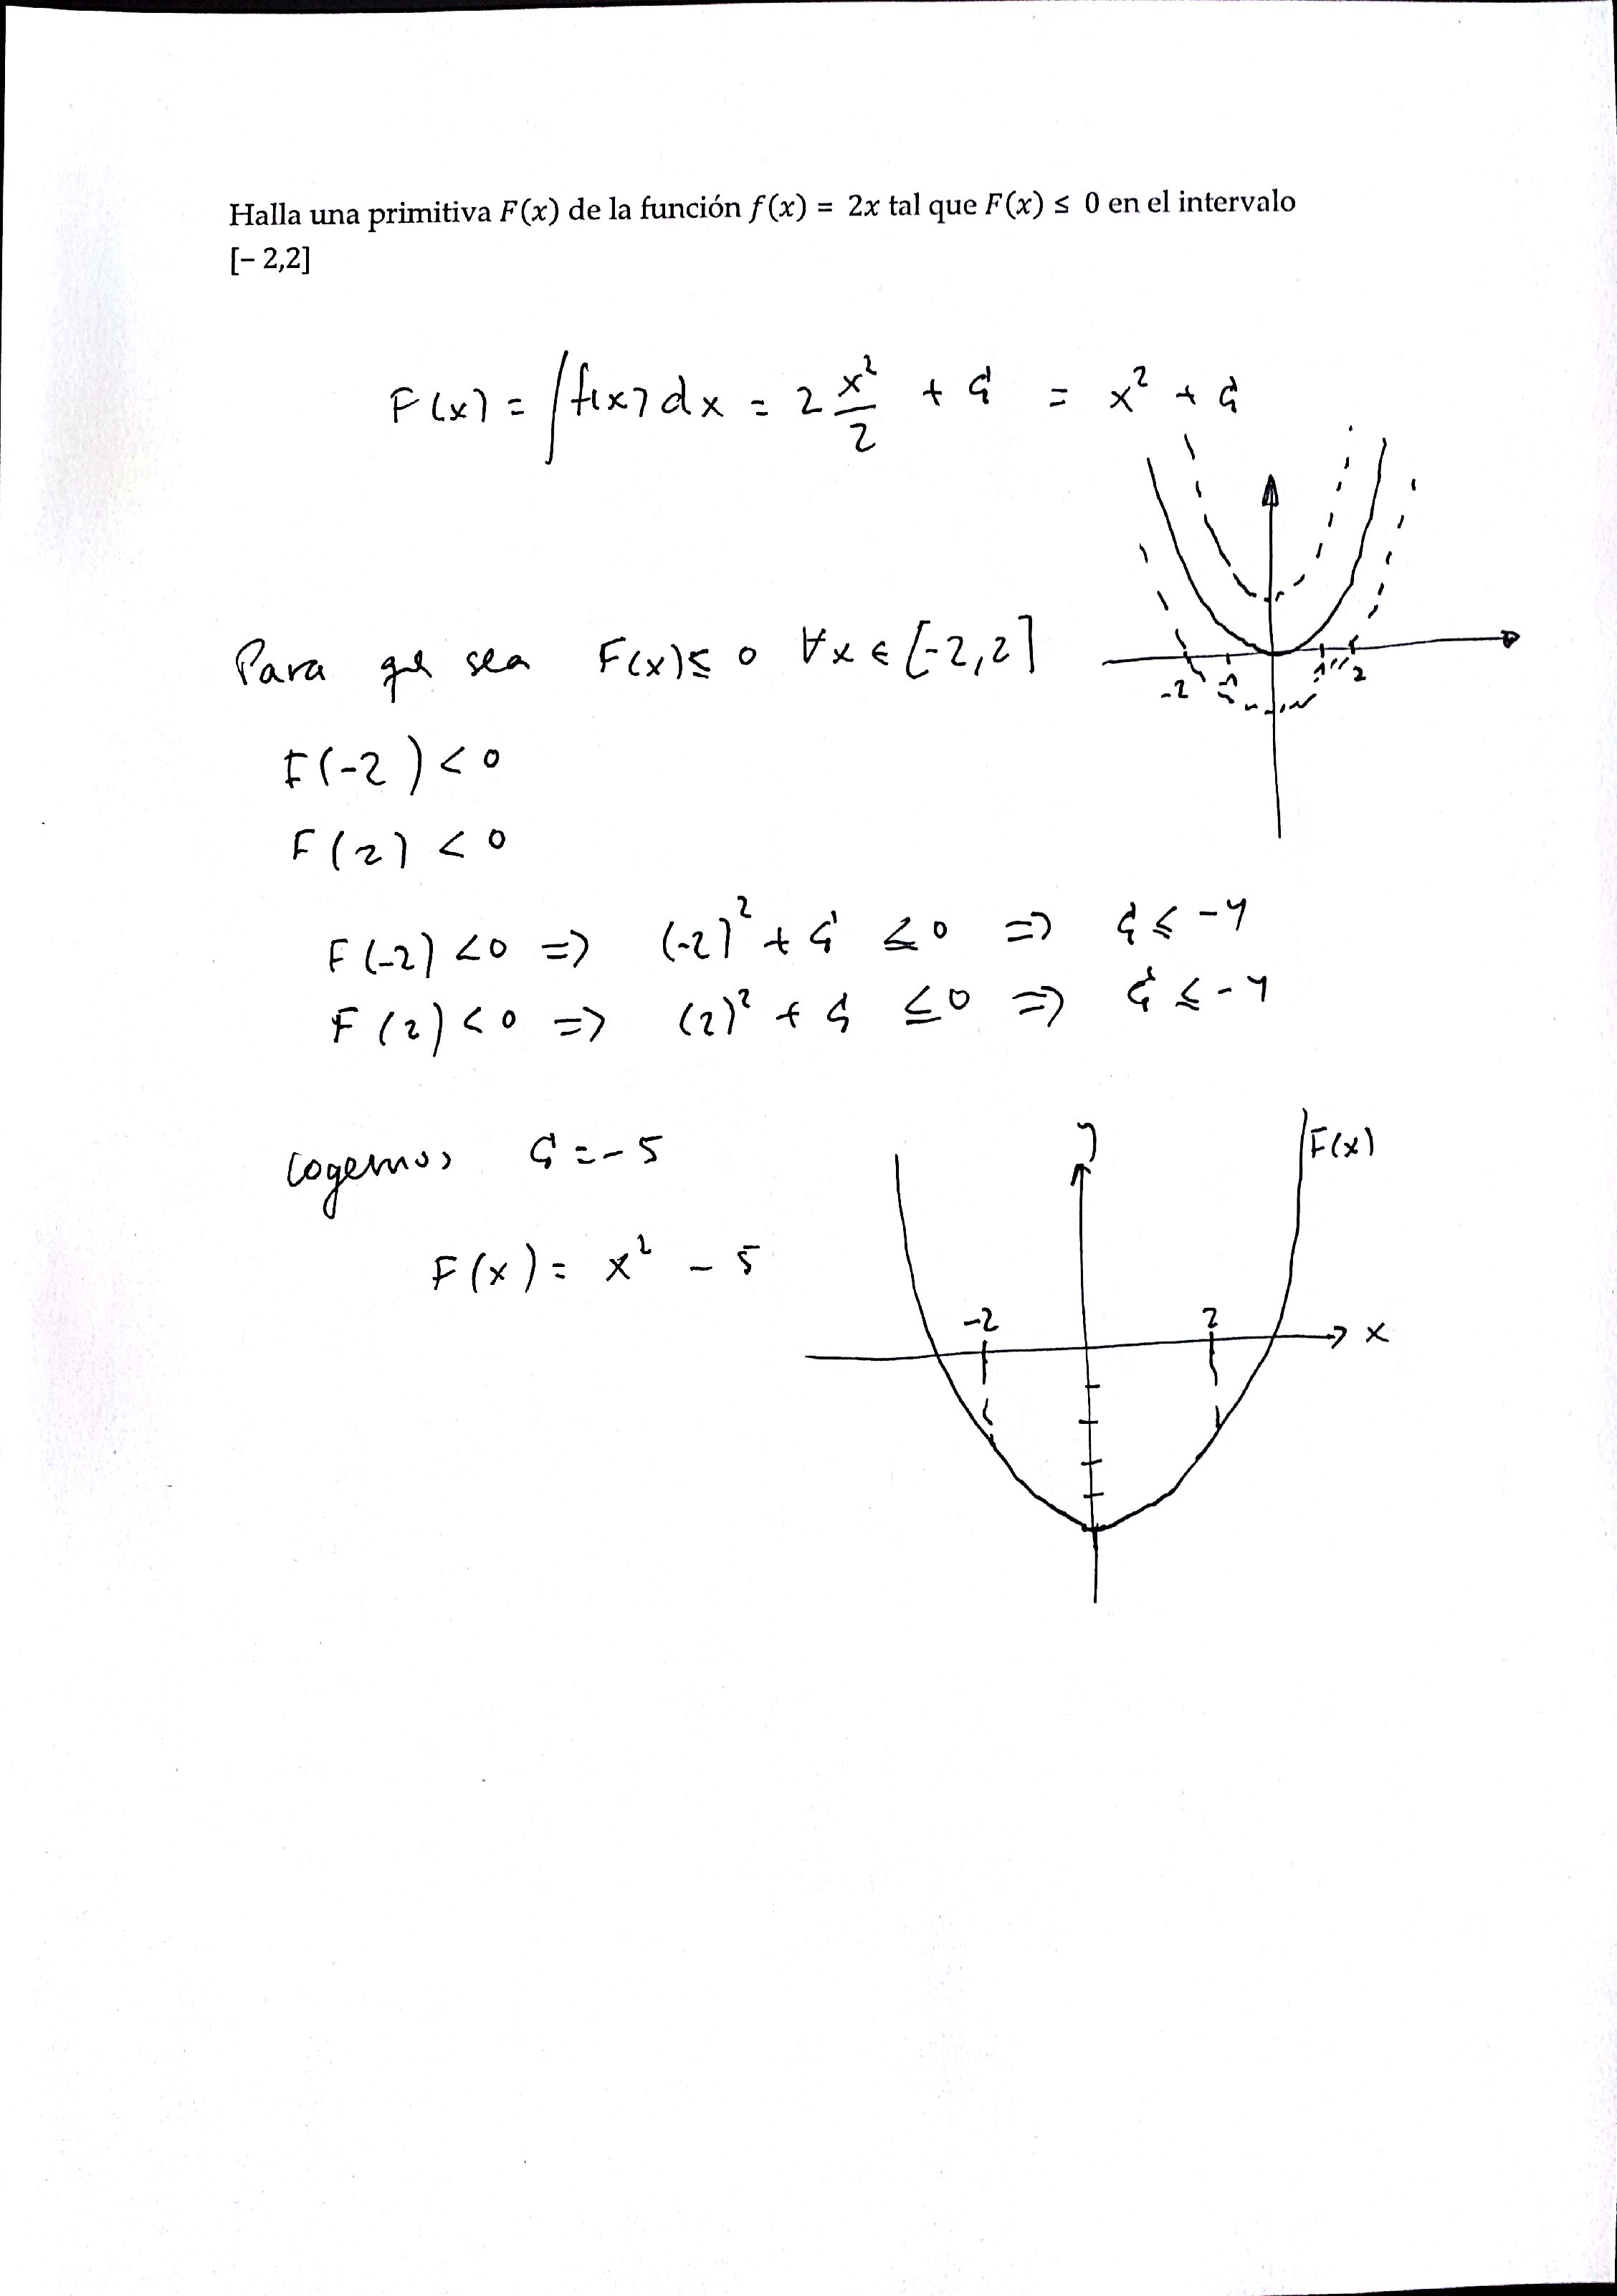 Halla una primitiva F(x) de la función f(x) = 2x tal que F(x) ≤ 0 en el intervalo
[− 2,2]
F(x) = ∫f(x)dx = 2 x²/2 + C = x² + C
Para que sea F(x) ≤ 0 ∀x ∈ [-2,2]
-2 -1 1 2
F(-2) < 0
F(2) < 0
F(-2) < 0 => (-2)² + C ≤ 0 => C ≤ -4
F(2) < 0 => (2)² + C ≤ 0 => C ≤ -4
Cogemos C = -5
y F(x)
F(x) = x² - 5
-2 2 x